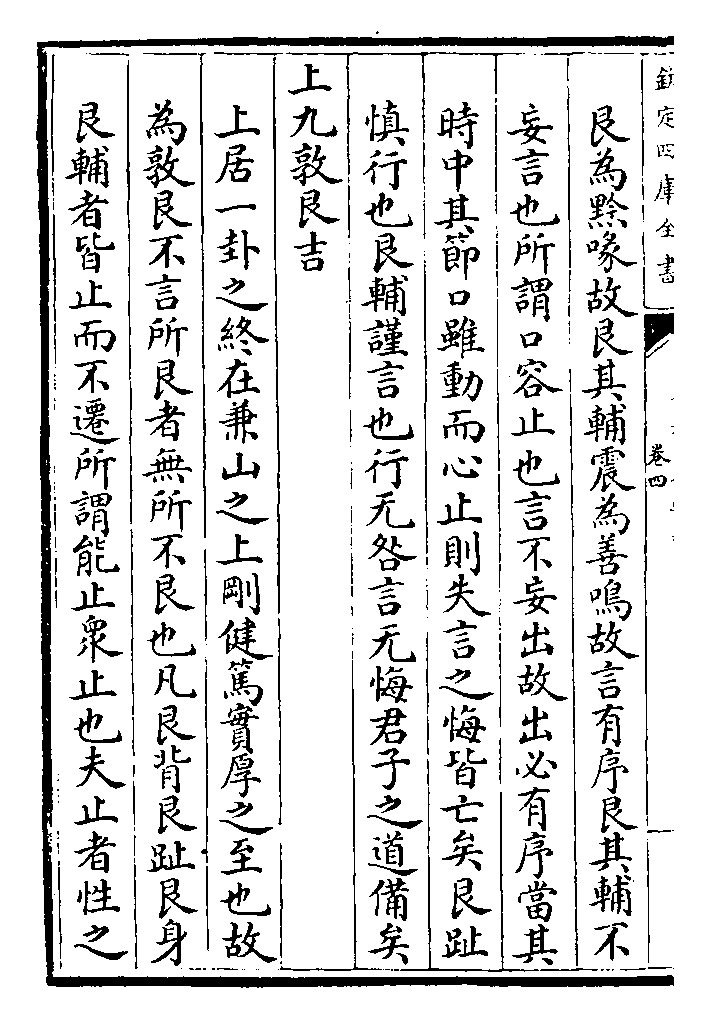 欽定四庫全書
卷四
艮為黔喙故艮其輔震為善鳴故言有序艮其輔不
妄言也所謂口容止也言不妄出故出必有序當其
時中其節口雖動而心止則失言之悔皆亡矣艮趾
慎行也艮輔謹言也行无咎言无悔君子之道備矣
上九敦艮吉
上居一卦之終在兼山之上剛健篤實厚之至也故
為敦艮不言所艮者無所不艮也凡艮背艮趾艮身
艮輔者皆止而不遷所謂能止衆止也夫止者性之